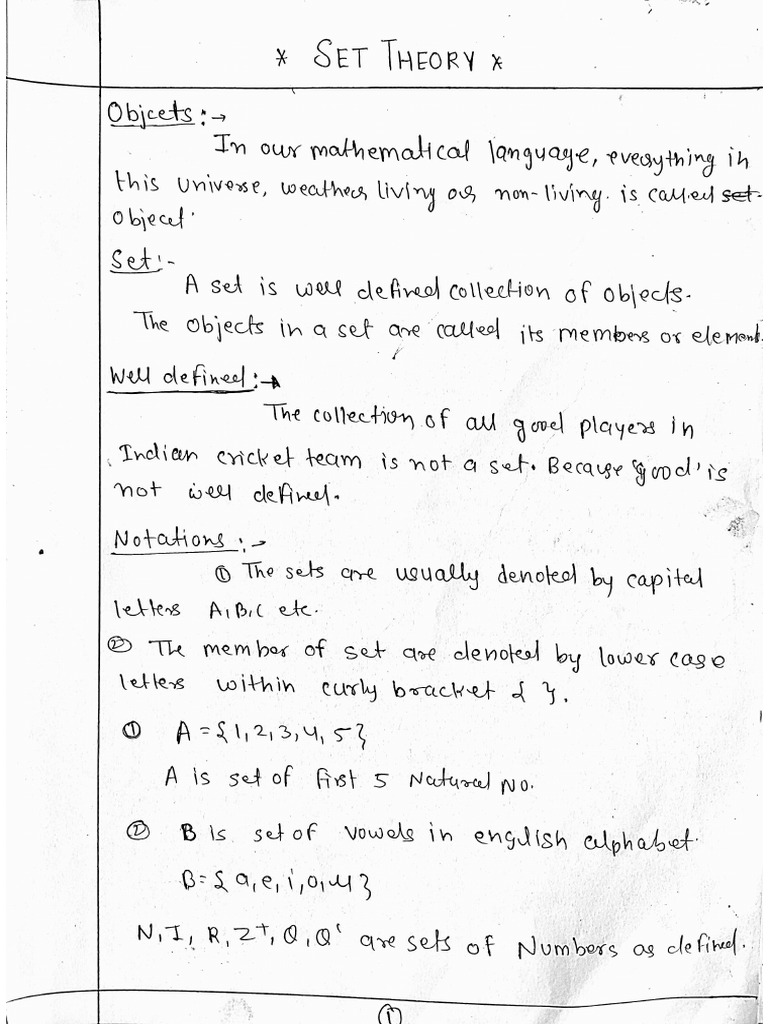 * SET THEORY *
Objcets :→
In our mathematical language, everything in
this universe, weather living or non-living. is called set
Object.
Set :-
A set is well defined collection of objects.
The objects in a set are called its members or element.
Well defined :→
The collection of all good players in
Indian cricket team is not a set. Because 'good' is
not well defined.
Notations :→
① The sets are usually denoted by capital
letters A, B, C etc.
② The member of set are denoted by lower case
letters within curly bracket { }.
① A = {1, 2, 3, 4, 5}
A is set of first 5 Natural No.
② B is set of vowels in english alphabet.
B = {a, e, i, o, u}
N, I, R, Z⁺, Q, Q' are sets of Numbers as defined.
①